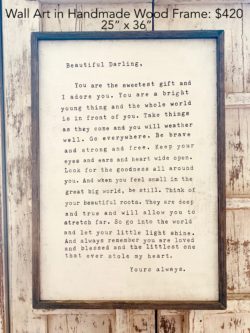 Wall Art in Handmade Wood Frame: $420
25” x 36”
Beautiful Darling,
You are the sweetest gift and
I adore you. You are a bright
young thing and the whole world
is in front of you. Take things
as they come and you will weather
well. Go everywhere. Be brave
and strong and free. Keep your
eyes and ears and heart wide open.
Look for the goodness all around
you. And when you feel small in the
great big world, be still. Think of
your beautiful roots. They are deep
and true and will allow you to
stretch far. So go into the world
and let your little light shine.
And always remember you are loved
and blessed and the littlest one
that ever stole my heart.
Yours always,